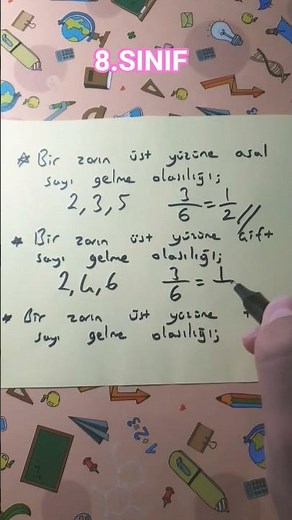 8.SINIF
* Bir zarın üst yüzüne asal
sayı gelme olasılığı;
2,3,5 3/6 = 1/2 //
* Bir zarın üst yüzüne çift
sayı gelme olasılığı;
2,4,6 3/6 = 1
* Bir zarın üst yüzüne
sayı gelme olasılığı;